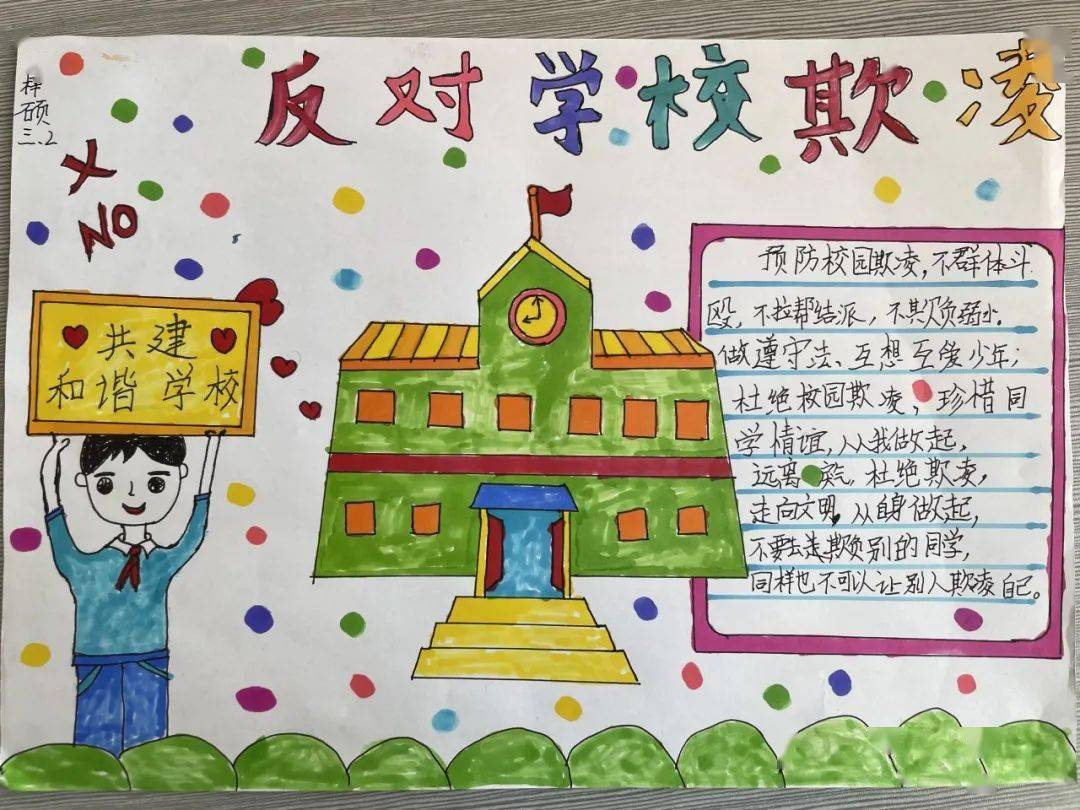 反对学校欺凌
梓硕
三.2
X
NO
共建
和谐 学校
预防校园欺凌,不群体斗
殴,不拉帮结派,不欺负弱小.
做遵守法、互想互爱少年;
杜绝校园欺凌,珍惜同
学情谊,从我做起,
远离 杜绝欺凌,
走向文明,从自身做起,
不要去欺负别的同学,
同样也不可以让别人欺凌自己。